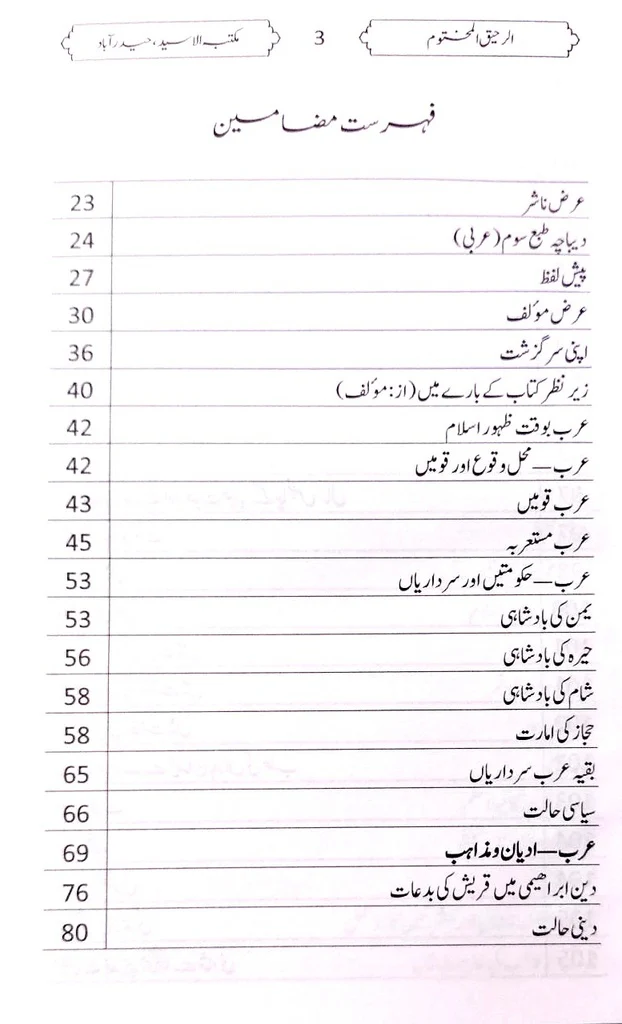 الرحیق المختوم 3 مکتبہ الاسید، حیدرآباد
فہرست مضامین
عرض ناشر 23
دیباچہ طبع سوم (عربی) 24
پیش لفظ 27
عرض مؤلف 30
اپنی سرگزشت 36
زیر نظر کتاب کے بارے میں (از: مؤلف) 40
عرب بوقت ظہور اسلام 42
عرب — محل وقوع اور قومیں 42
عرب قومیں 43
عرب مستعربہ 45
عرب — حکومتیں اور سرداریاں 53
یمن کی بادشاہی 53
حیرہ کی بادشاہی 56
شام کی بادشاہی 58
حجاز کی امارت 58
بقیہ عرب سرداریاں 65
سیاسی حالت 66
عرب — ادیان و مذاہب 69
دین ابراھیمی میں قریش کی بدعات 76
دینی حالت 80